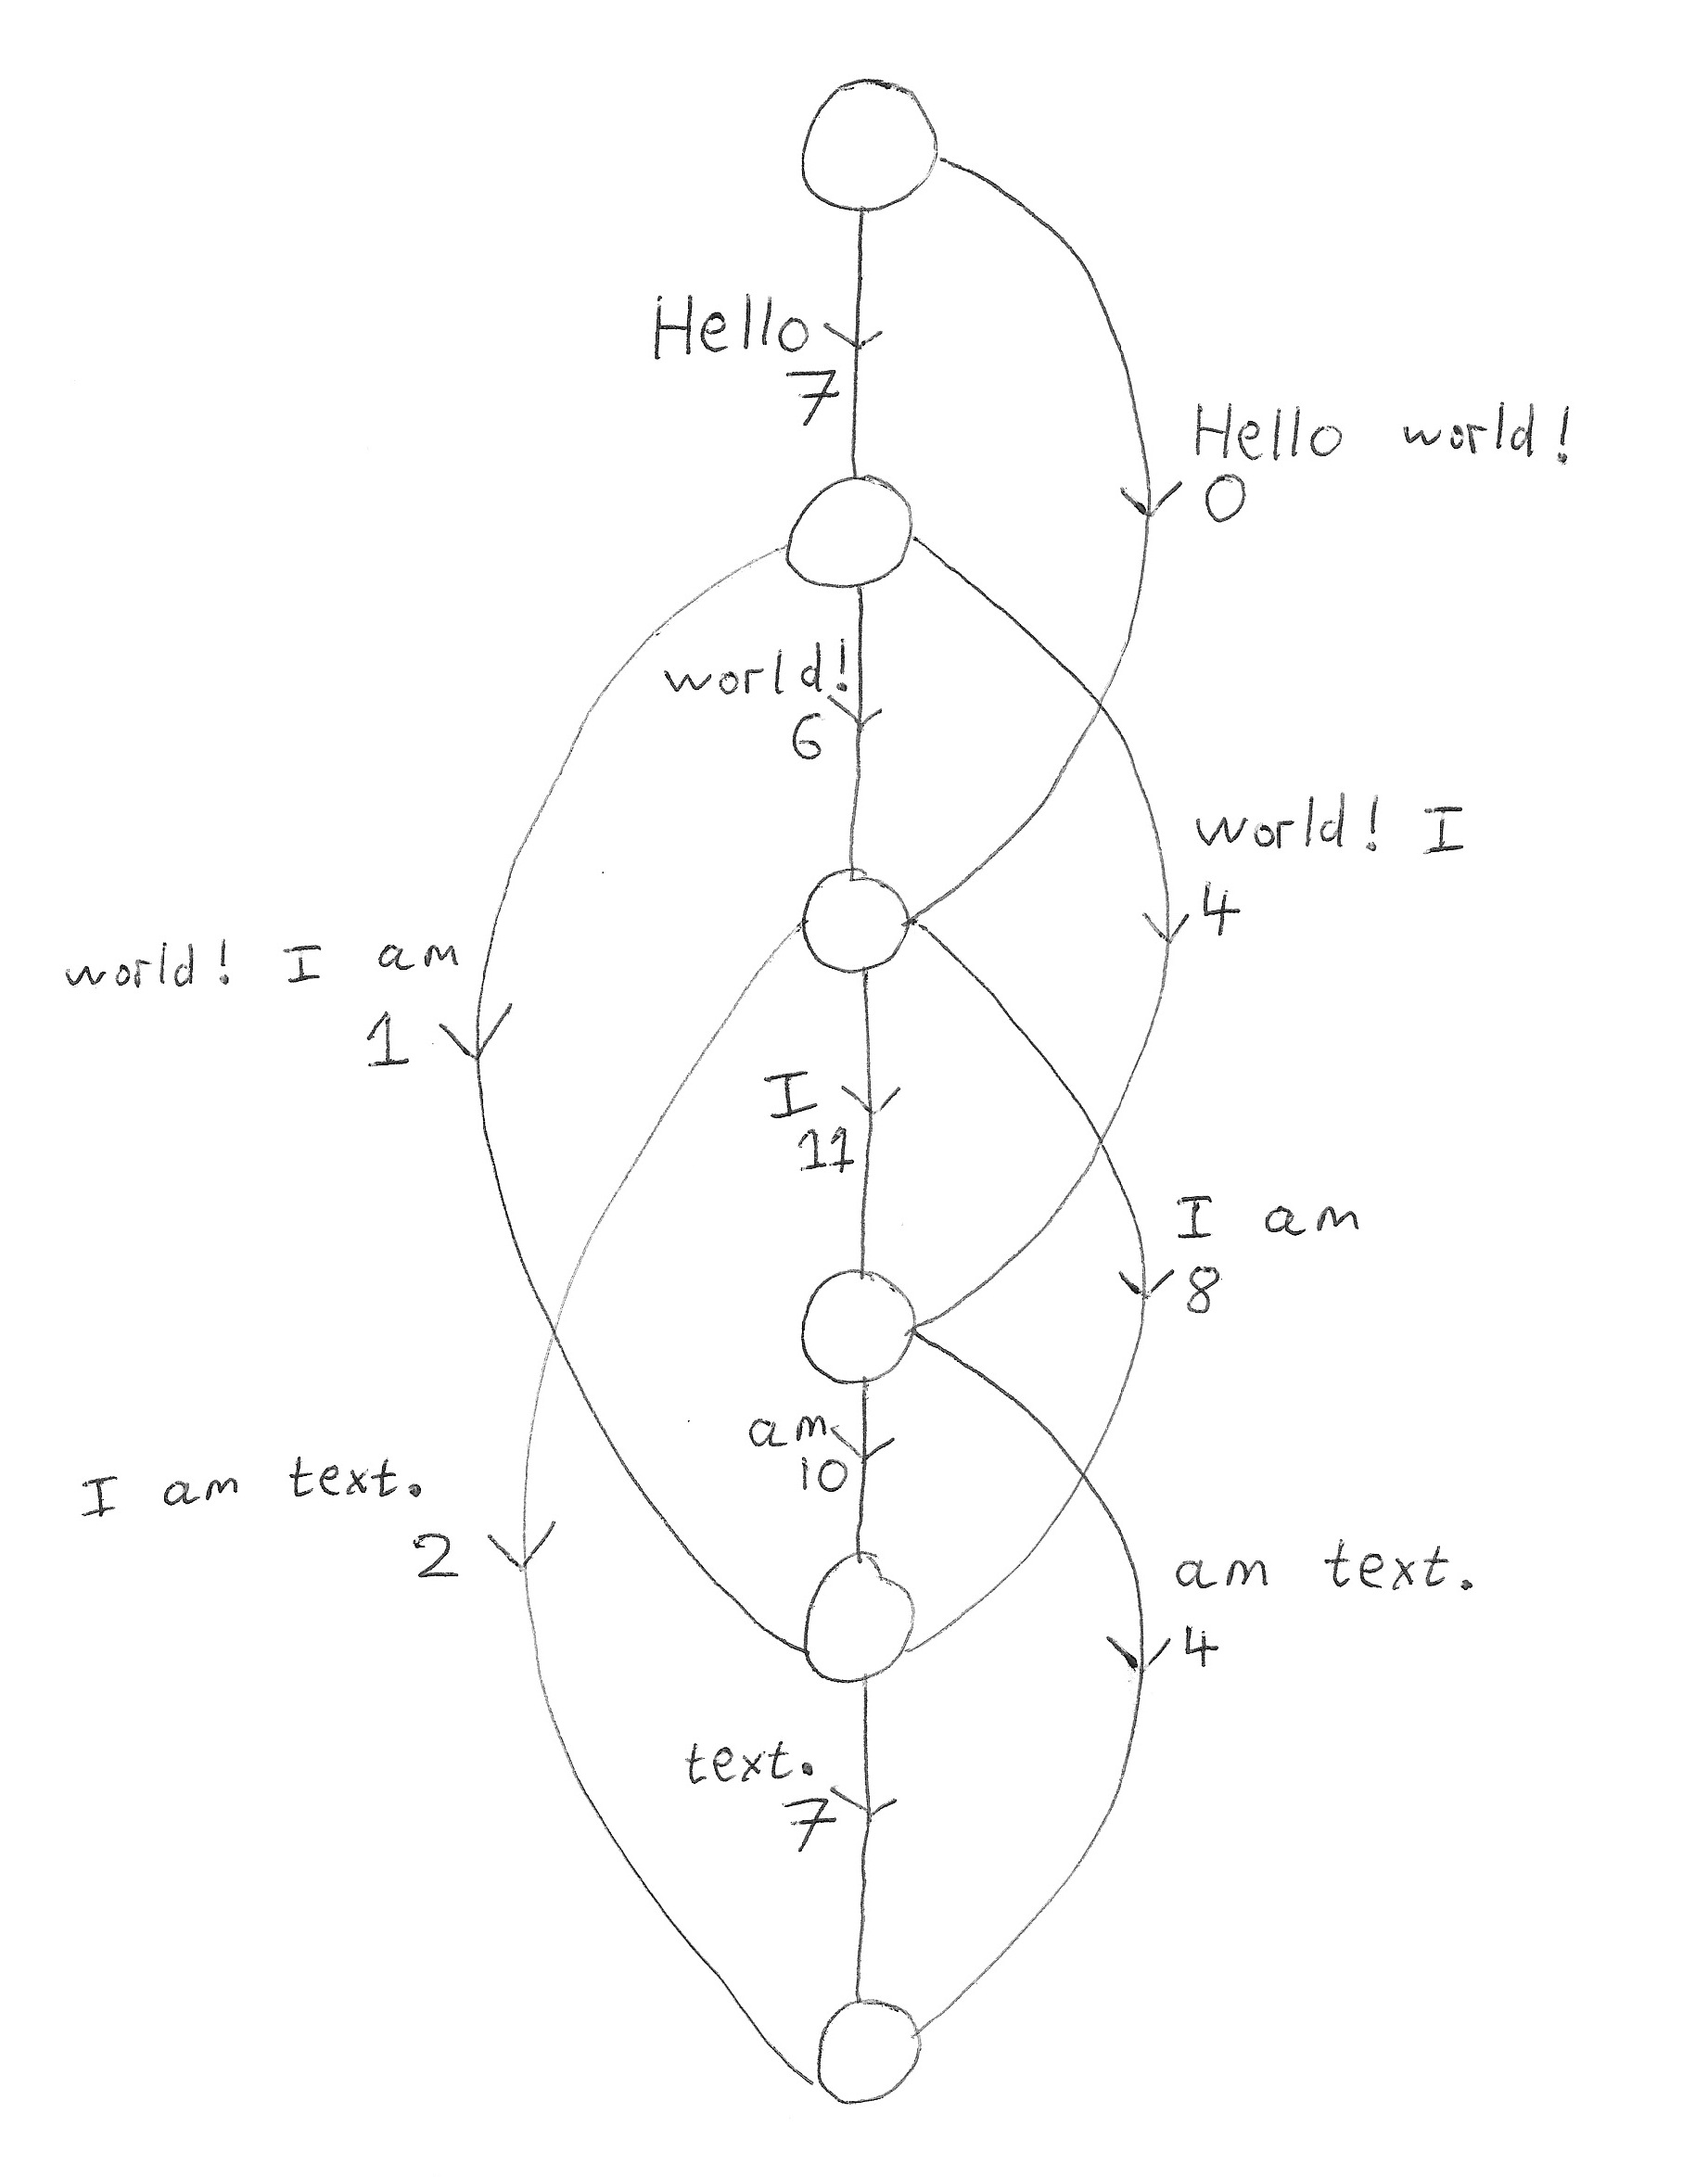 Hello
7
Hello world!
0
world!
6
world! I
4
world! I am
1
I
11
I am
8
am
10
I am text.
2
am text.
4
text.
7